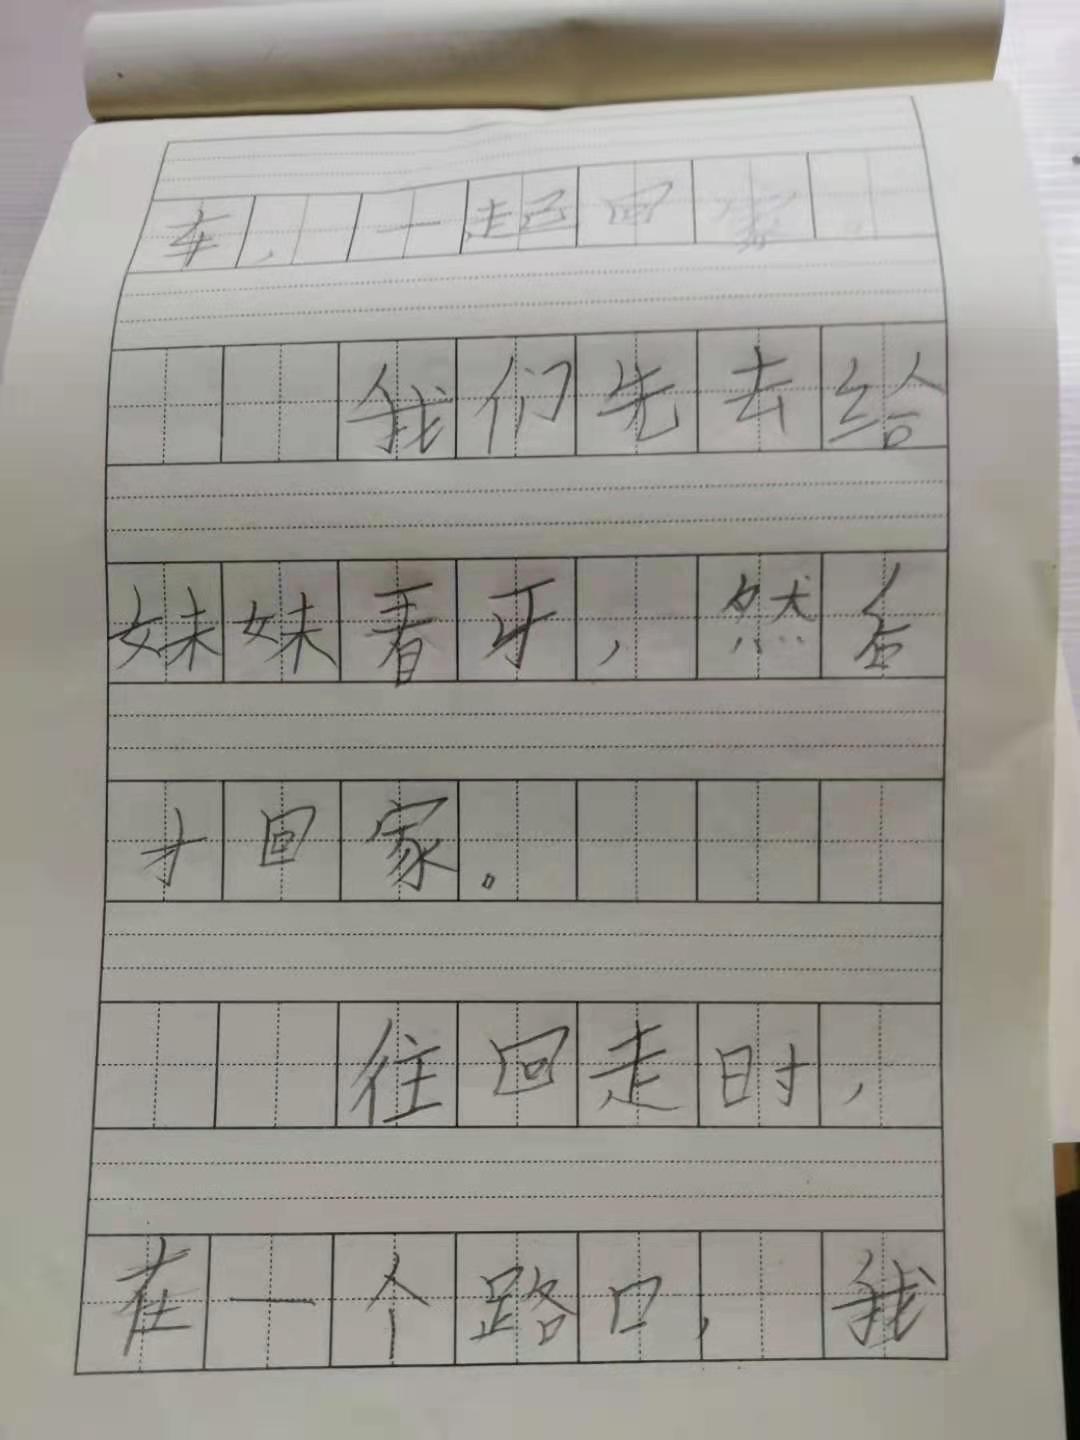 车，一起回家。
我们先去给
妹妹看牙，然后
才回家。
往回走时，
在一个路口，我